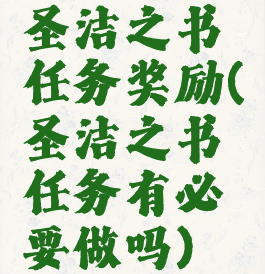 圣洁之书
任务奖励(
圣洁之书
任务有必
要做吗)